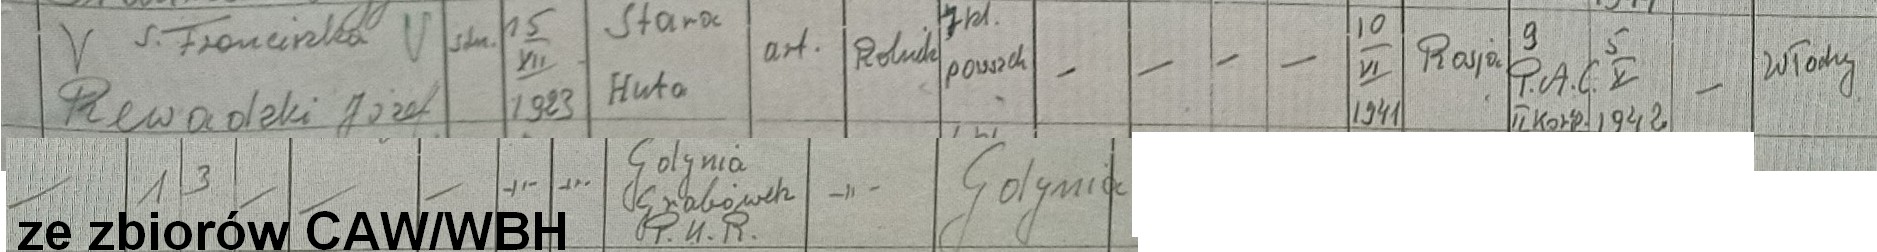 V s. Franciszka V stn. 15 VII 1923 Stara Huta art. Rolnik 7 kl. powszch — — — — 10 VI 1941 Rosja 9 P.A.C. II Korp. 5 V 1942 — Włochy
Rewadzki Józef
— 1 3 — — — —"— —"— Gdynia Grabówek P.U.R. —"— Gdynia
ze zbiorów CAW/WBH